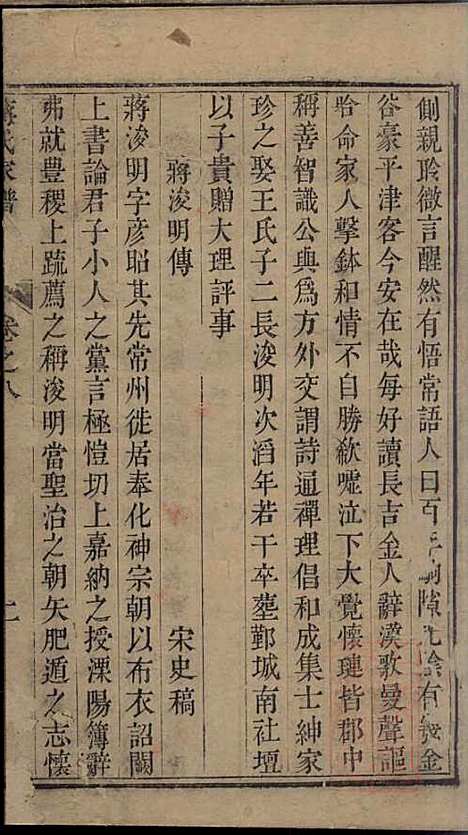 側親聆微言醒然有悟常語人曰百年𨻶光陰有幾金
谷豪平津客今安在哉每好讀長吉金人辭漢歌曼聲謳
唅命家人擊鉢和情不自勝欷噓泣下大覺懷璉皆郡中
稱善智識公與爲方外交謂詩通禪理倡和成集士紳家
珍之娶王氏子二長浚明次滔年若干卒塟鄞城南社壇
以子貴贈大理評事
蔣浚明傳 宋史稿
蔣浚明字彦昭其先常州徙居奉化神宗朝以布衣詔闕
上書論君子小人之黨言極愷切上嘉納之授溧陽簿辭
弗就豊稷上疏薦之稱浚明當聖治之朝矢肥遁之志懷
蔣氏家譜 卷之八 上